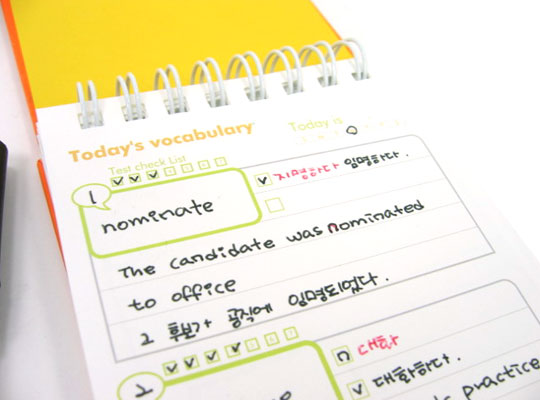 Today's vocabulary
Test check List
1
nominate
지명하다 임명하다.
The candidate was nominated
to office
그 후보가 공직에 임명되었다.
2
대화
대화하다.
practice